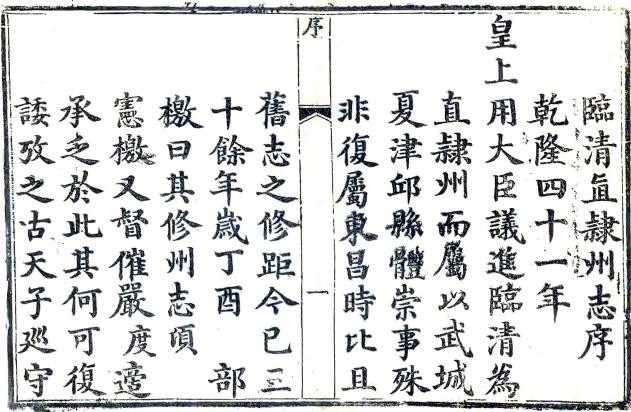 臨清直隸州志序
乾隆四十一年
皇上用大臣議進臨清為
直隸州而屬以武城
夏津邱縣體崇事殊
非復屬東昌時比且
序
一
舊志之修距今已三
十餘年歲丁酉 部
檄曰其修州志頃
憲檄又督催嚴度適
承乏於此其何可復
諉攷之古天子廵守